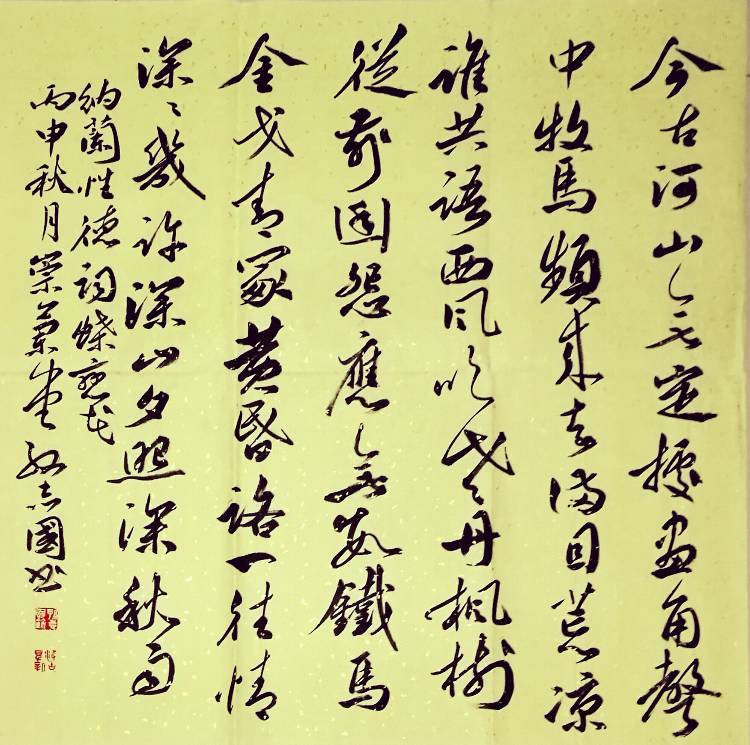 今古河山無定據畫角聲
中牧馬頻來去滿目荒凉
誰共語西風吹老丹楓樹
從前幽怨應無數鐵馬
金戈青冢黃昏路一往情
深々幾許深山夕照深秋雨
納蘭性德詞蝶戀花
丙申秋月蘭堂志國書